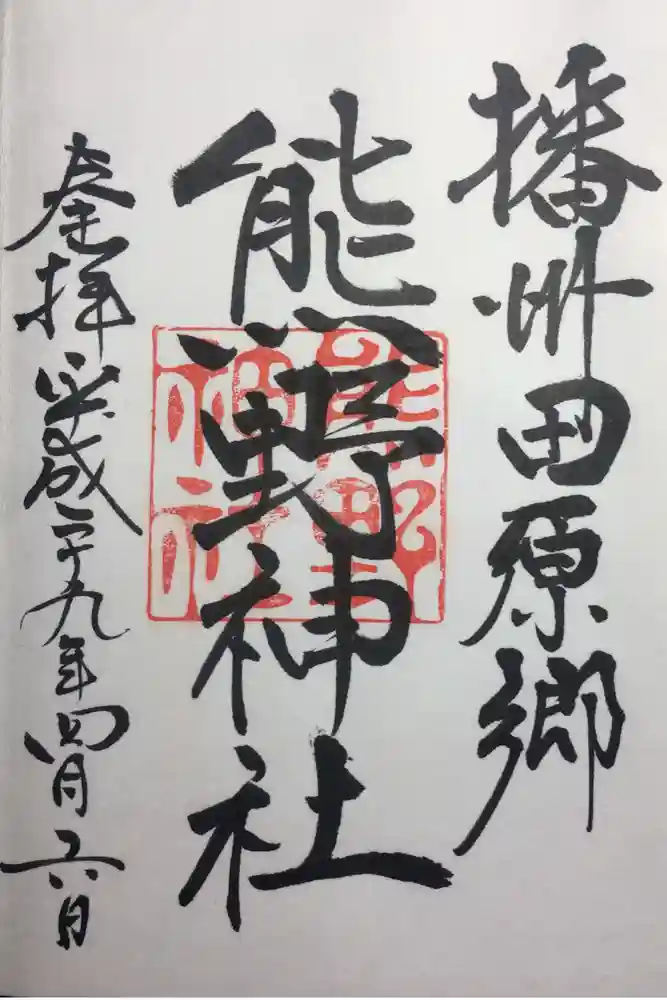 播州田原郷
熊野神社
熊野神社
奉拝 平成二十九年四月六日